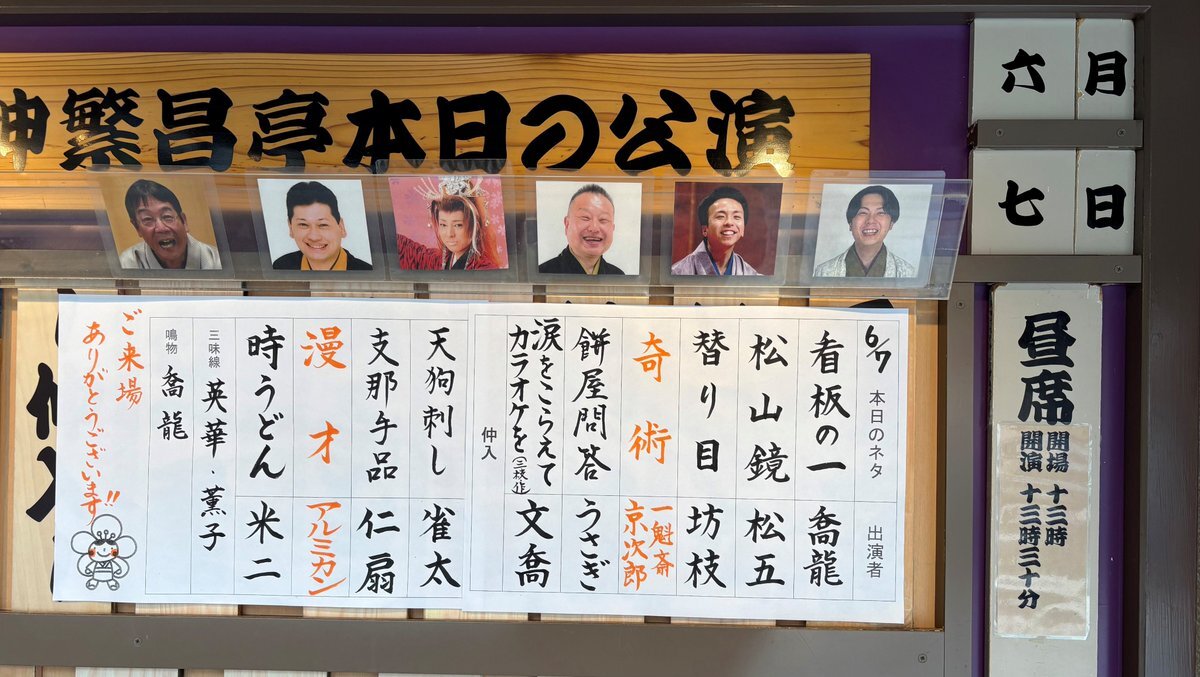 神繁昌亭本日の公演
六月
七日
昼席
開場 十三時
開演 十三時三十分
6/7 本日のネタ 出演者
看板の一 喬龍
松山鏡 松五
替り目 坊枝
奇術 一魁斎 京次郎
餅屋問答 うさぎ
涙をこらえてカラオケを(三枝作) 文喬
仲入
天狗刺し 雀太
支那手品 仁扇
漫才 アルミカン
時うどん 米二
三味線 英華・薫子
鳴物 喬龍
ご来場
ありがとうございます!!